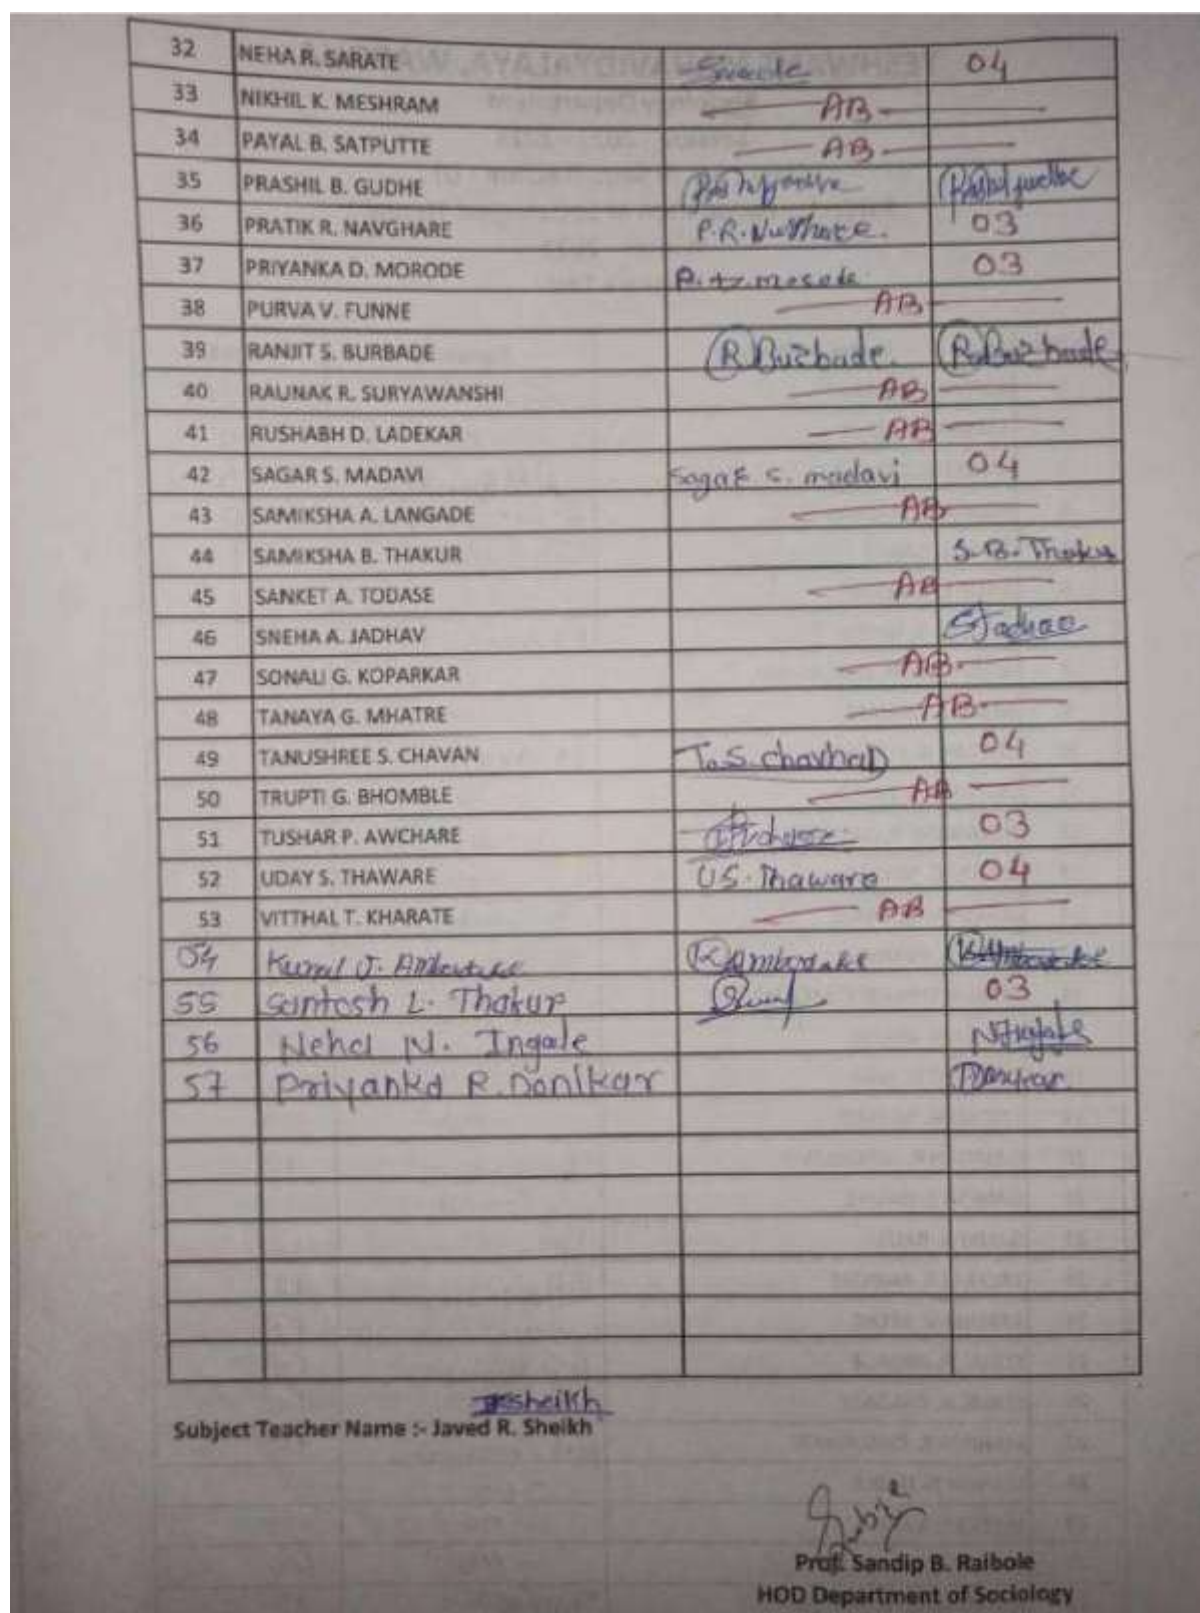 32 NEHA R. SARATE 04
33 NIKHIL K. MESHRAM AB
34 PAYAL B. SATPUTTE AB
35 PRASHIL B. GUDHE
36 PRATIK R. NAVGHARE 03
37 PRIYANKA D. MORODE 03
38 PURVA V. FUNNE AB
39 RANJIT S. BURBADE R Burbade R Burbade
40 RAUNAK R. SURYAWANSHI AB
41 RUSHABH D. LADEKAR AB
42 SAGAR S. MADAVI Sagar S. madavi 04
43 SAMIKSHA A. LANGADE AB
44 SAMIKSHA B. THAKUR S.B. Thakur
45 SANKET A. TODASE AB
46 SNEHA A. JADHAV
47 SONALI G. KOPARKAR AB
48 TANAYA G. MHATRE AB
49 TANUSHREE S. CHAVAN T.S. chavhan 04
50 TRUPTI G. BHOMBLE AB
51 TUSHAR P. AWCHARE 03
52 UDAY S. THAWARE U S. Thaware 04
53 VITTHAL T. KHARATE AB
54 Kunal J.
55 Santosh L. Thakur 03
56 Neha N. Ingale
57 Priyanka R. Danikar
sheikh
Subject Teacher Name :- Javed R. Sheikh
Prof. Sandip B. Raibole
HOD Department of Sociology